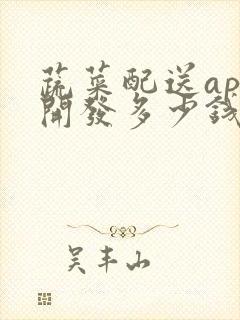 蔬菜配送ap
開發多少錢
吴丰山